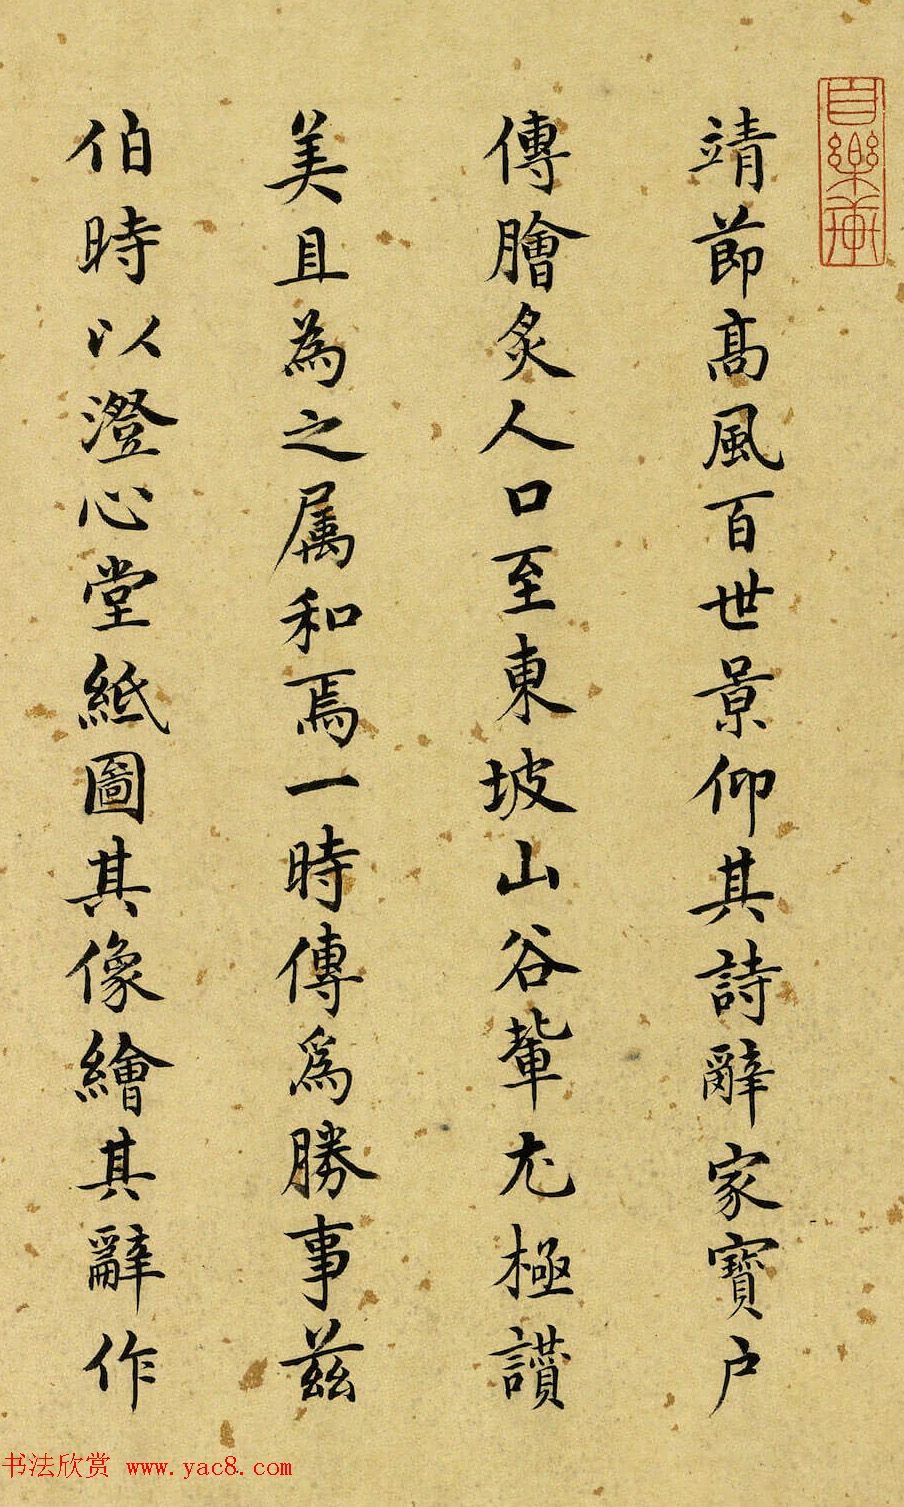 靖節高風百世景仰其詩辭家寶户
傳膾炙人口至東坡山谷輩尤極讃
美且為之属和焉一時傳爲勝事兹
伯時以澄心堂紙圖其像繪其辭作
书法欣赏 www.yac8.com